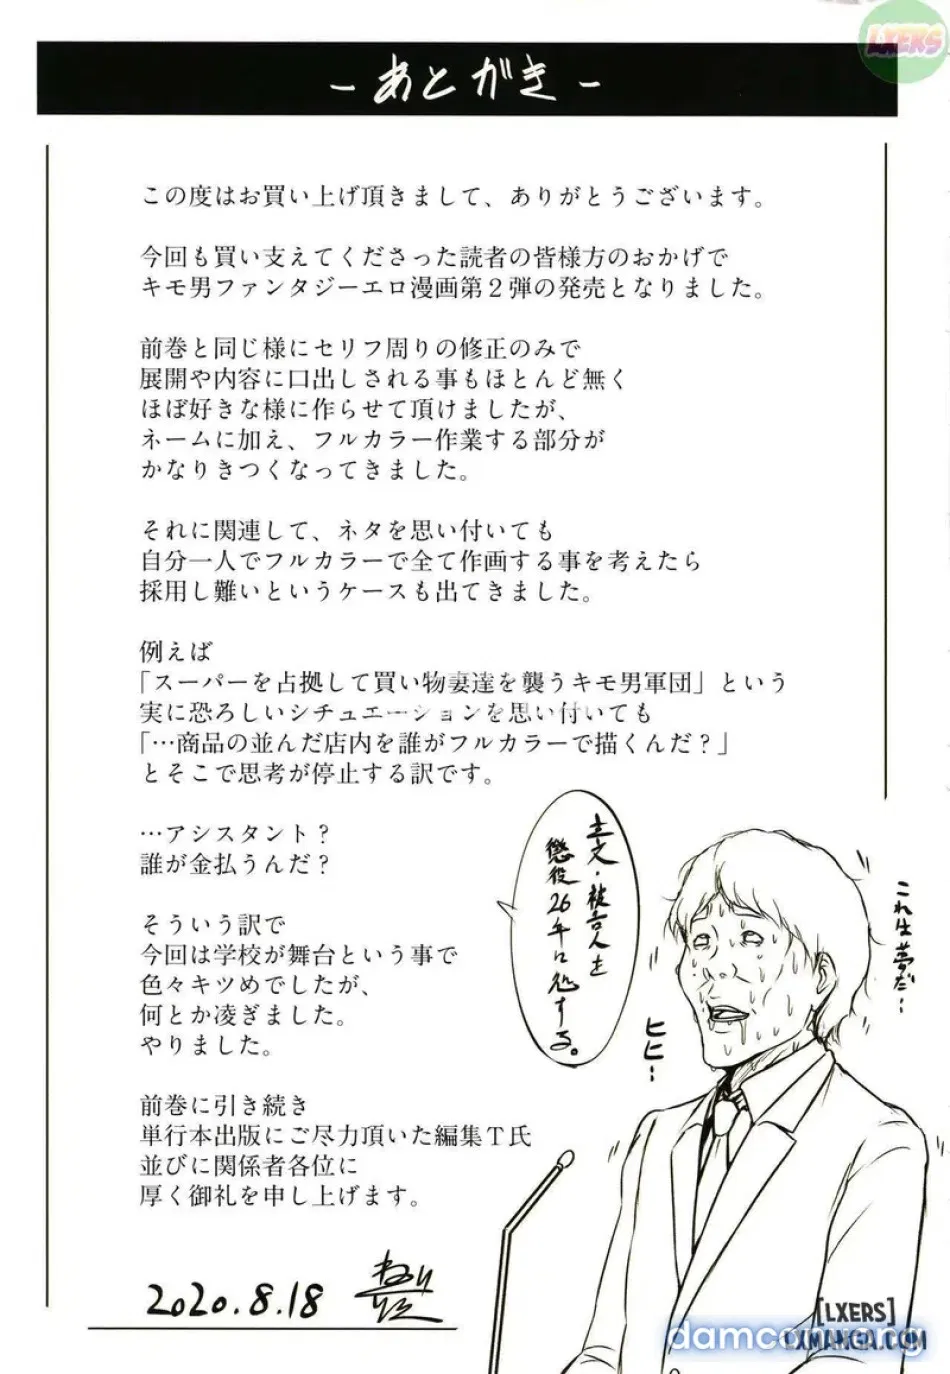 LXERS
- あとがき -
この度はお買い上げ頂きまして、ありがとうございます。
今回も買い支えてくださった読者の皆様方のおかげで
キモ男ファンタジーエロ漫画第２弾の発売となりました。
前巻と同じ様にセリフ周りの修正のみで
展開や内容に口出しされる事もほとんど無く
ほぼ好きな様に作らせて頂けましたが、
ネームに加え、フルカラー作業する部分が
かなりきつくなってきました。
それに関連して、ネタを思い付いても
自分一人でフルカラーで全て作画する事を考えたら
採用し難いというケースも出てきました。
例えば
「スーパーを占拠して買い物妻達を襲うキモ男軍団」という
実に恐ろしいシチュエーションを思い付いても
「…商品の並んだ店内を誰がフルカラーで描くんだ？」
とそこで思考が停止する訳です。
…アシスタント？
誰が金払うんだ？
そういう訳で
今回は学校が舞台という事で
色々キツめでしたが、
何とか凌ぎました。
やりました。
前巻に引き続き
単行本出版にご尽力頂いた編集Ｔ氏
並びに関係者各位に
厚く御礼を申し上げます。
主文・被告人を
懲役26年に処する。
これ生夢だ…
ヒヒ…
2020.8.18
[LXERS]
LXMANGA.COM